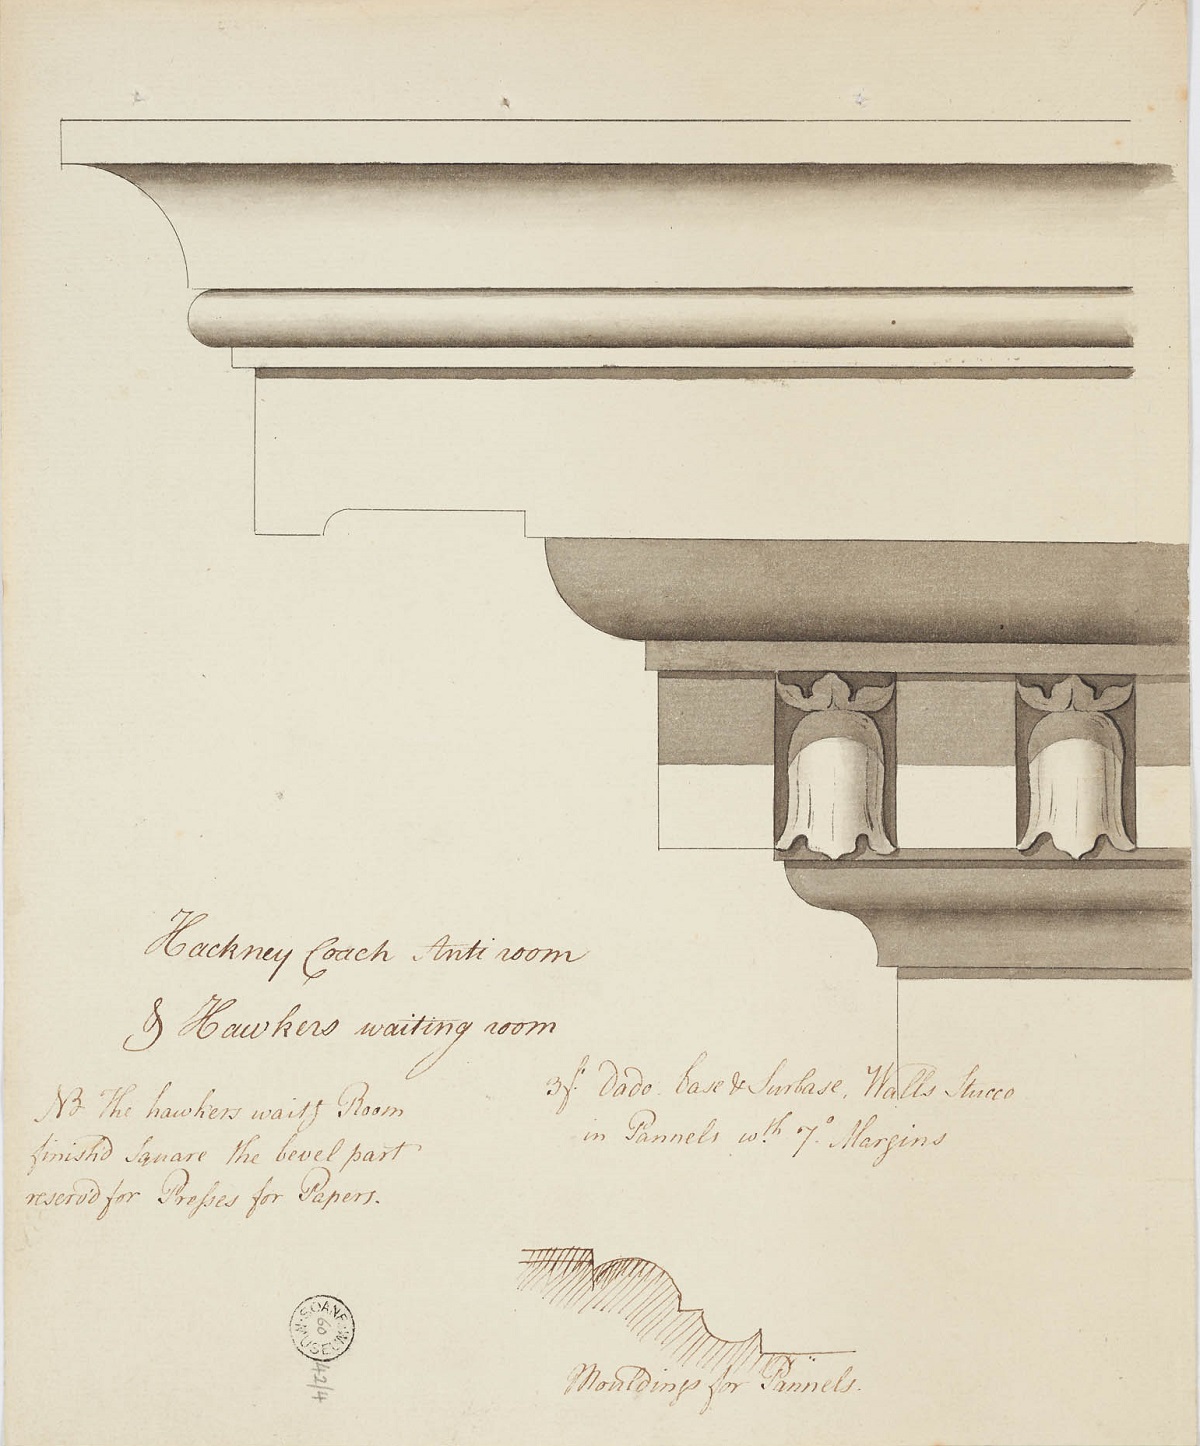 Hackney Coach Anti room
& Hawkers waiting room
NB The hawkers waitg Room
finish'd Square the bevel part
reserv'd for Presses for Papers.
3f. Dado. base & Surbase, Walls Stucco
in Pannels wth 7.° Margins
Mouldings for Pannels.
SOANE MUSEUM
60
42/4